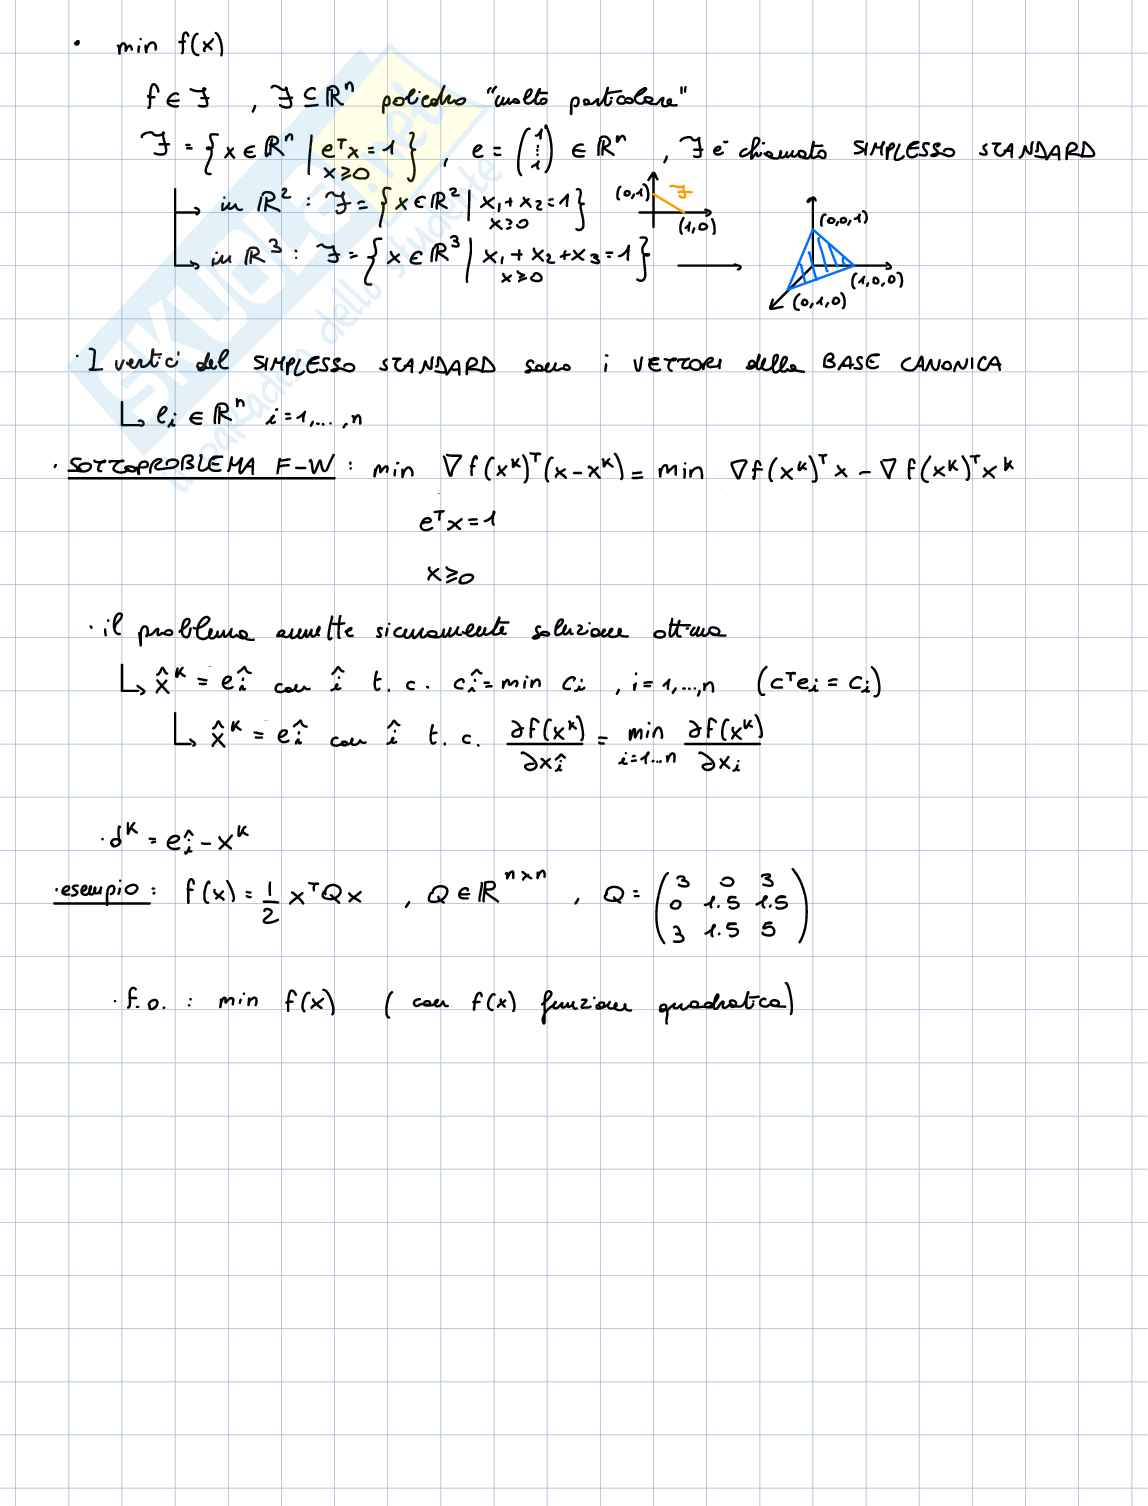 • min f(x)
f ∈ ℱ , ℱ ⊆ ℝⁿ poliedro "molto particolare"
ℱ = { x ∈ ℝⁿ | eᵀx = 1 x ≥ 0 } , e = (1 ⋮ 1) ∈ ℝⁿ , ℱ è chiamato SIMPLESSO STANDARD
↳ in ℝ² : ℱ = { x ∈ ℝ² | x₁ + x₂ = 1 x ≥ 0 } (0,1) ℱ (1,0)
↳ in ℝ³ : ℱ = { x ∈ ℝ³ | x₁ + x₂ + x₃ = 1 x ≥ 0 } → (0,0,1) (1,0,0) (0,1,0)
· I vertici del SIMPLESSO STANDARD sono i VETTORI della BASE CANONICA
↳ eᵢ ∈ ℝⁿ i = 1,...,n
· SOTTOPROBLEMA F-W : min ∇f(xᵏ)ᵀ(x - xᵏ) = min ∇f(xᵏ)ᵀ x - ∇f(xᵏ)ᵀ xᵏ
eᵀx = 1
x ≥ 0
· il problema ammette sicuramente soluzione ottima
↳ x̂ᵏ = e_î con î t.c. c_î = min cᵢ , i = 1,...,n (cᵀeᵢ = cᵢ)
↳ x̂ᵏ = e_î con î t.c. ∂f(xᵏ)/∂x_î = min i=1...n ∂f(xᵏ)/∂xᵢ
· dᵏ = e_î - xᵏ
· esempio : f(x) = 1/2 xᵀQx , Q ∈ ℝⁿˣⁿ , Q = (3 0 3
0 1.5 1.5
3 1.5 5)
· f.o. : min f(x) ( con f(x) funzione quadratica)
SKUOLA.net
il paradiso dello studente